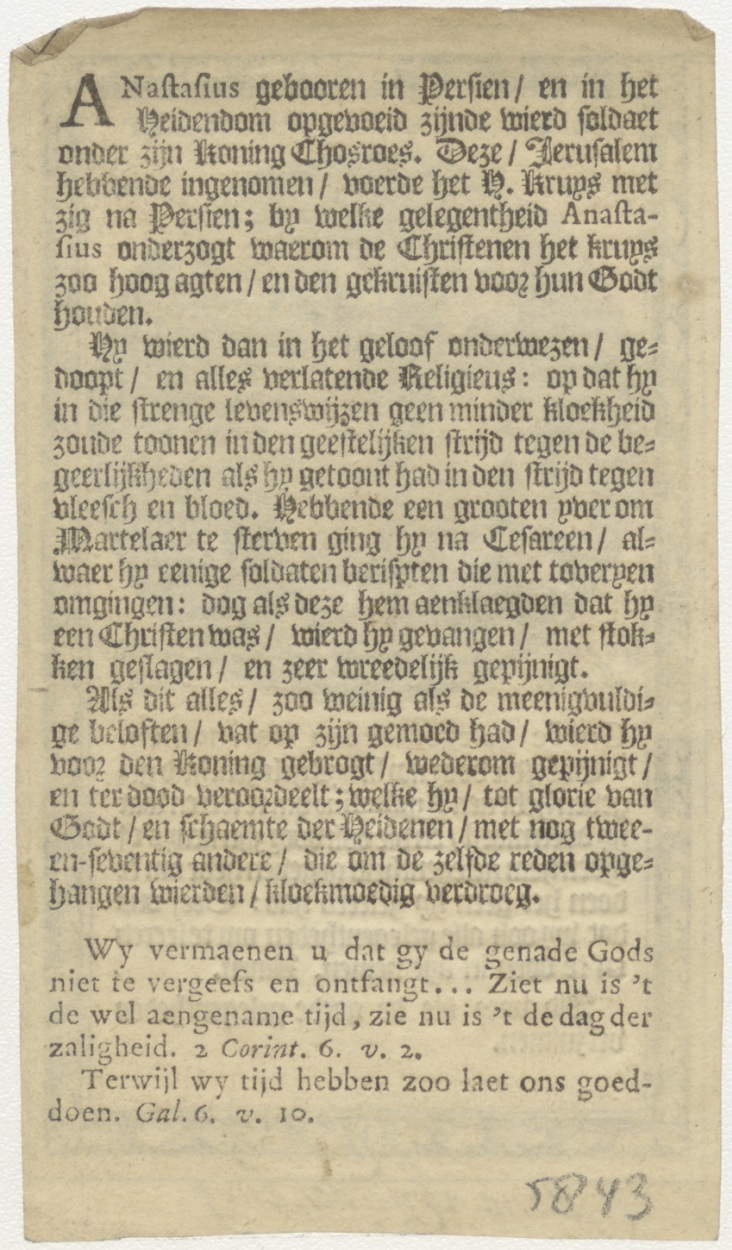 ANastasius gebooren in Persien/ en in het
Heidendom opgevoeid zijnde wierd soldaet
onder zijn Koning Chosroes. Deze/ Jerusalem
hebbende ingenomen/ voerde het H. Kruys met
zig na Persien; by welke gelegentheid Anasta-
sius onderzogt waerom de Christenen het kruys
zoo hoog agten/ en den gekruisten voor hun Godt
houden.
Hy wierd dan in het geloof onderwezen/ ge-
doopt/ en alles verlatende Religieus: op dat hy
in die strenge levenswijzen geen minder kloekheid
zoude toonen in den geestelijken strijd tegen de be-
geerlijkheden als hy getoont had in den strijd tegen
vleesch en bloed. Hebbende een grooten yver om
Martelaer te sterven ging hy na Cesareen/ al-
waer hy eenige soldaten berispten die met toveryen
omgingen: dog als deze hem aenklaegden dat hy
een Christen was/ wierd hy gevangen/ met stok-
ken geslagen/ en zeer wreedelijk gepijnigt.
Als dit alles/ zoo weinig als de meenigvuldi-
ge beloften/ vat op zijn gemoed had/ wierd hy
voor den Koning gebrogt/ wederom gepijnigt/
en ter dood veroordeelt; welke hy/ tot glorie van
Godt/ en schaemte der Heidenen/ met nog twee-
en-seventig andere/ die om de zelfde reden opge-
hangen wierden/ kloekmoedig verdroeg.
Wy vermaenen u dat gy de genade Gods
niet te vergeefs en ontfangt... Ziet nu is 't
de wel aengename tijd, zie nu is 't de dag der
zaligheid. 2 Corint. 6. v. 2.
Terwijl wy tijd hebben zoo laet ons goed-
doen. Gal. 6. v. 10.
5843